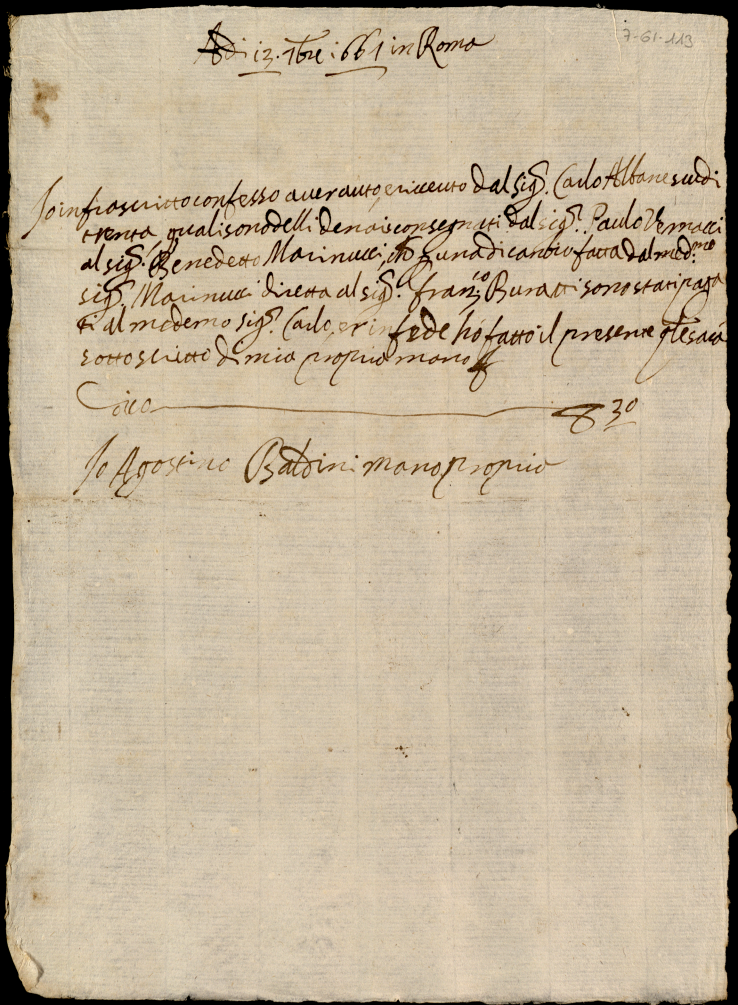 7-61-113
Adi 12. 9bre 1661 in Roma
Io infrascritto confesso aver auto, e riceuto dal sig.r Carlo Albane scudi
trenta, quali sono delli denari consegnati dal sig.r Paulo Vernacci
al sig.r Benedetto Marinucci, una di cambio fatta dal med.mo
sig.r Marinucci diretta al sig.r Franz.co Buratti sono stati paga
ti al medemo sig.r Carlo, et in fede hó fatto il presente sará
sotto scritto di mia propria mano
Dico 30
Io Agostino Baldini mano propria